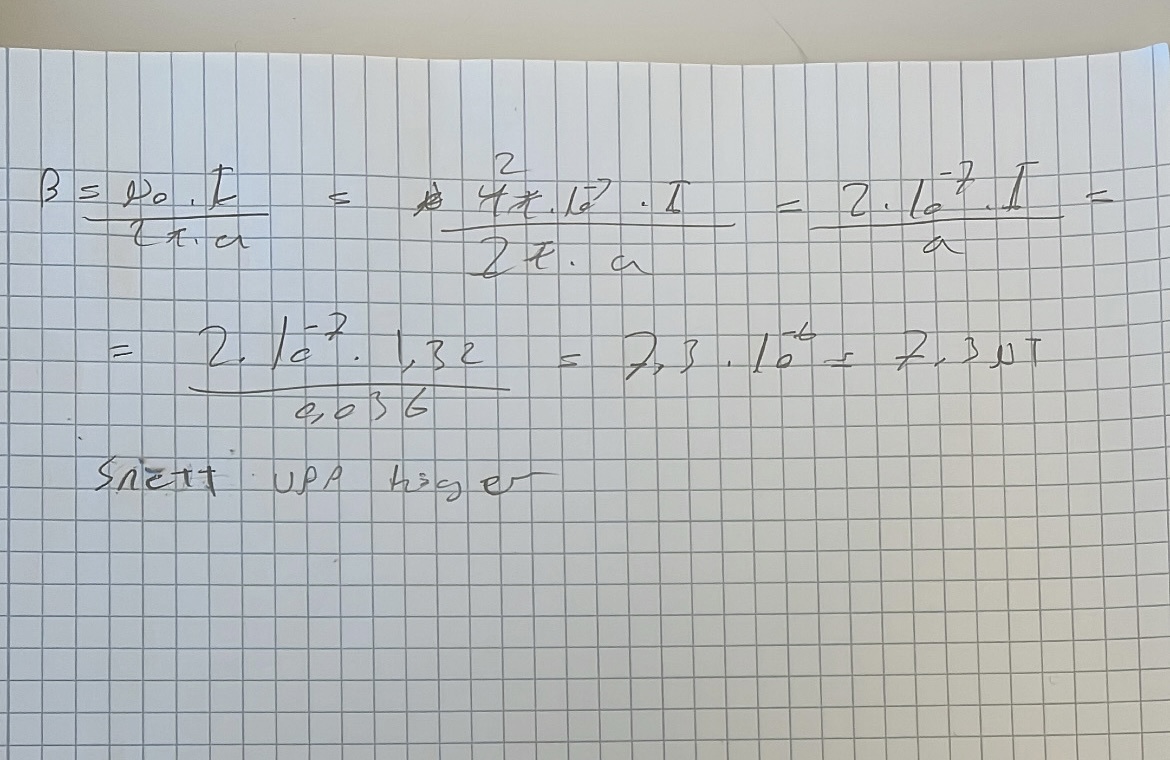 B = μ₀ · I / 2π · a = 2 4π · 10⁻⁷ · I / 2π · a = 2 · 10⁻⁷ · I / a =
= 2 · 10⁻⁷ · 1,32 / 0,036 = 7,3 · 10⁻⁶ = 7,3 μT
Snett upp höger